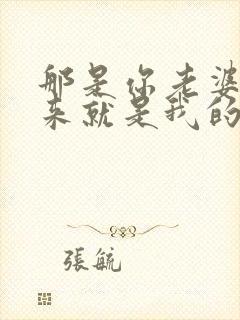 那是你老婆
来就是我的
張毓